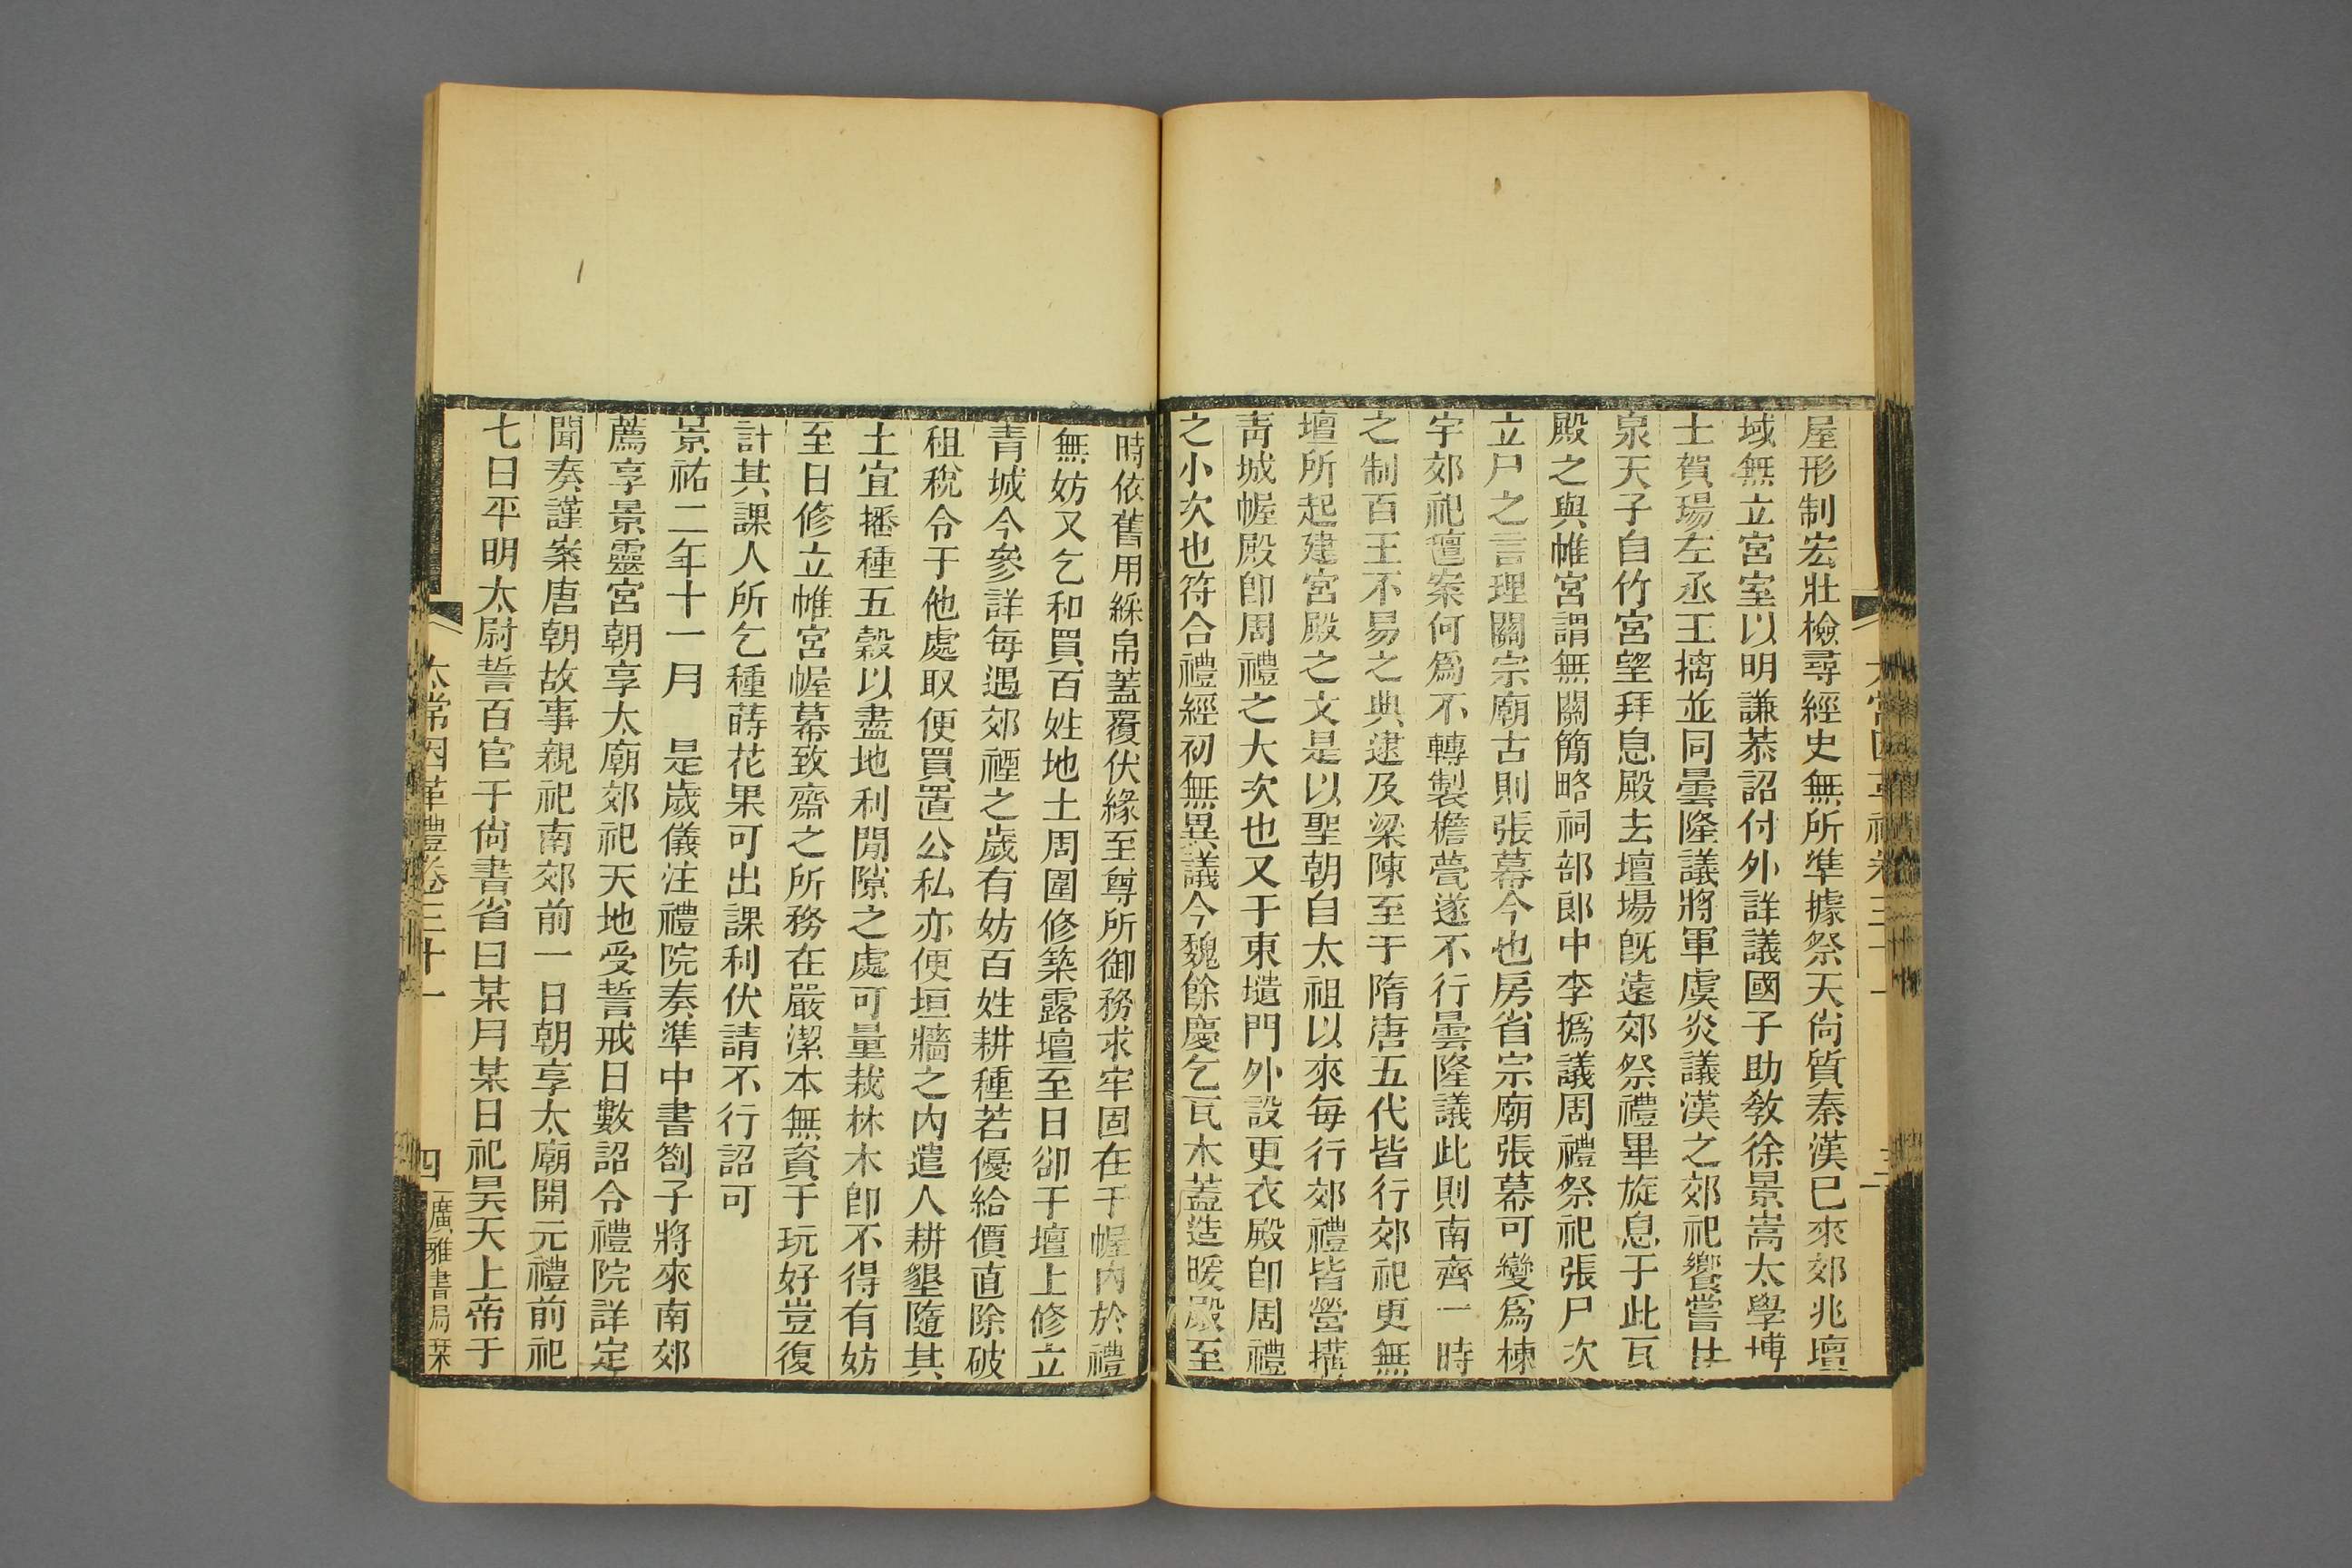 屋形制宏壯檢尋經史無所準據祭天尚質秦漢巳來郊兆壇
域無立宮室以明謙恭詔付外詳議國子助敎徐景嵩太學博
士賀瑒左丞王摛並同曇隆議將軍虞炎議漢之郊祀饗嘗甘
泉天子自竹宮望拜息殿去壇場旣遠郊祭禮畢旋息于此瓦
殿之與帷宮謂無關簡略祠部郎中李撝議周禮祭祀張尸次
立尸之言理關宗廟古則張幕今也房省宗廟張幕可變爲棟
宇郊祀氊案何爲不轉製檐甍遂不行曇隆議此則南齊一時
之制百王不易之典逮及梁陳至于隋唐五代皆行郊祀更無
壇所起建宮殿之文是以聖朝自太祖以來每行郊禮皆營構
靑城幄殿卽周禮之大次也又于東壝門外設更衣殿卽周禮
之小次也符合禮經初無異議今魏餘慶乞瓦木蓋造暖殿至
時依舊用綵帛蓋覆伏緣至尊所御務求牢固在于幄內於禮
無妨又乞和買百姓地土周圍修築露壇至日卻于壇上修立
青城今參詳每遇郊禋之歲有妨百姓耕種若優給價直除破
租稅令于他處取便買置公私亦便垣牆之內遣人耕墾隨其
土宜播種五穀以盡地利閒隙之處可量栽林木卽不得有妨
至日修立帷宮幄幕致齋之所務在嚴潔本無資于玩好豈復
計其課人所乞種蒔花果可出課利伏請不行詔可
景祐二年十一月　是歲儀注禮院奏準中書劄子將來南郊
薦享景靈宮朝享太廟郊祀天地受誓戒日數詔令禮院詳定
聞奏謹案唐朝故事親祀南郊前一日朝享太廟開元禮前祀
七日平明太尉誓百官于尙書省曰某月某日祀昊天上帝于
太常因革禮卷三十一　四　廣雅書局栞